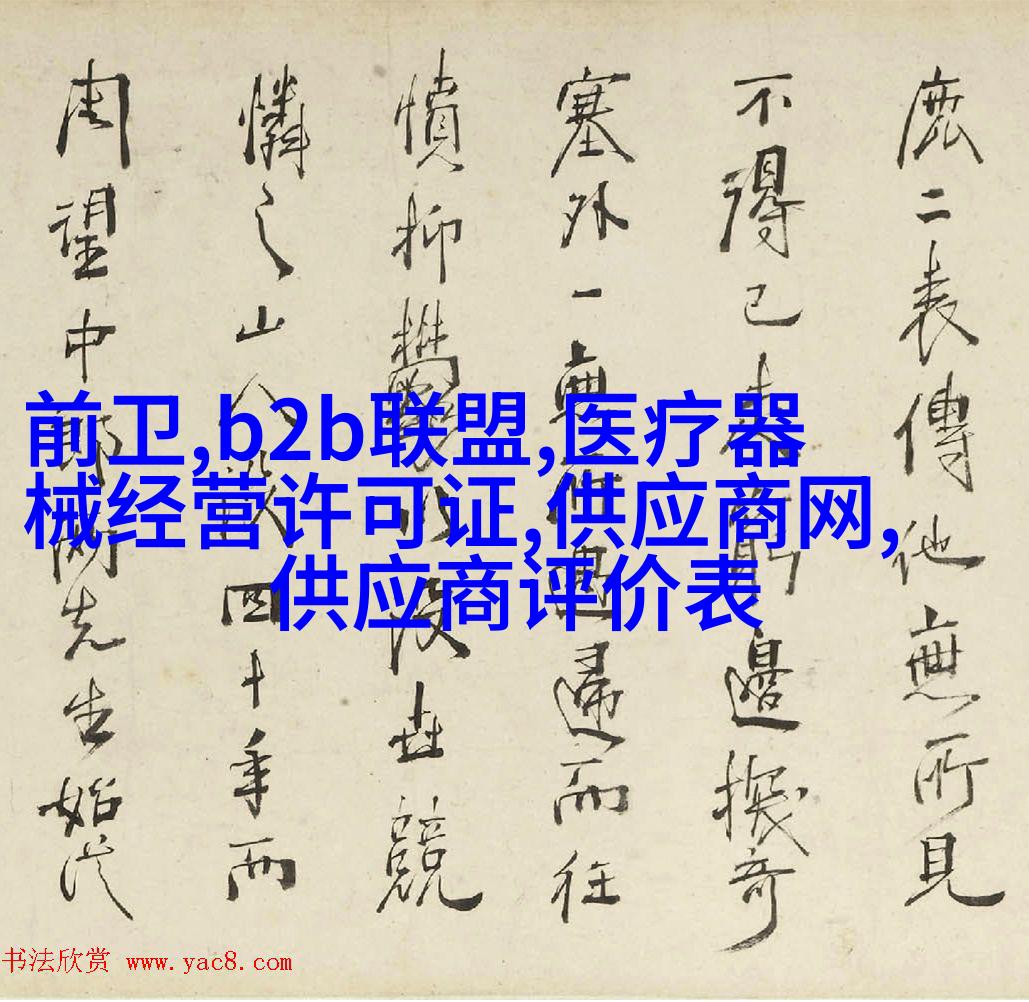 二表傳他無所見
不得已邊探奇
塞外一無所遇歸而往
憤抑鬱以没世競
憐之山人四十年而
周望中郎兩先生始從
前卫,b2b联盟,医疗器
械经营许可证,供应商网,
供应商评价表
书法欣赏 www.yac8.com